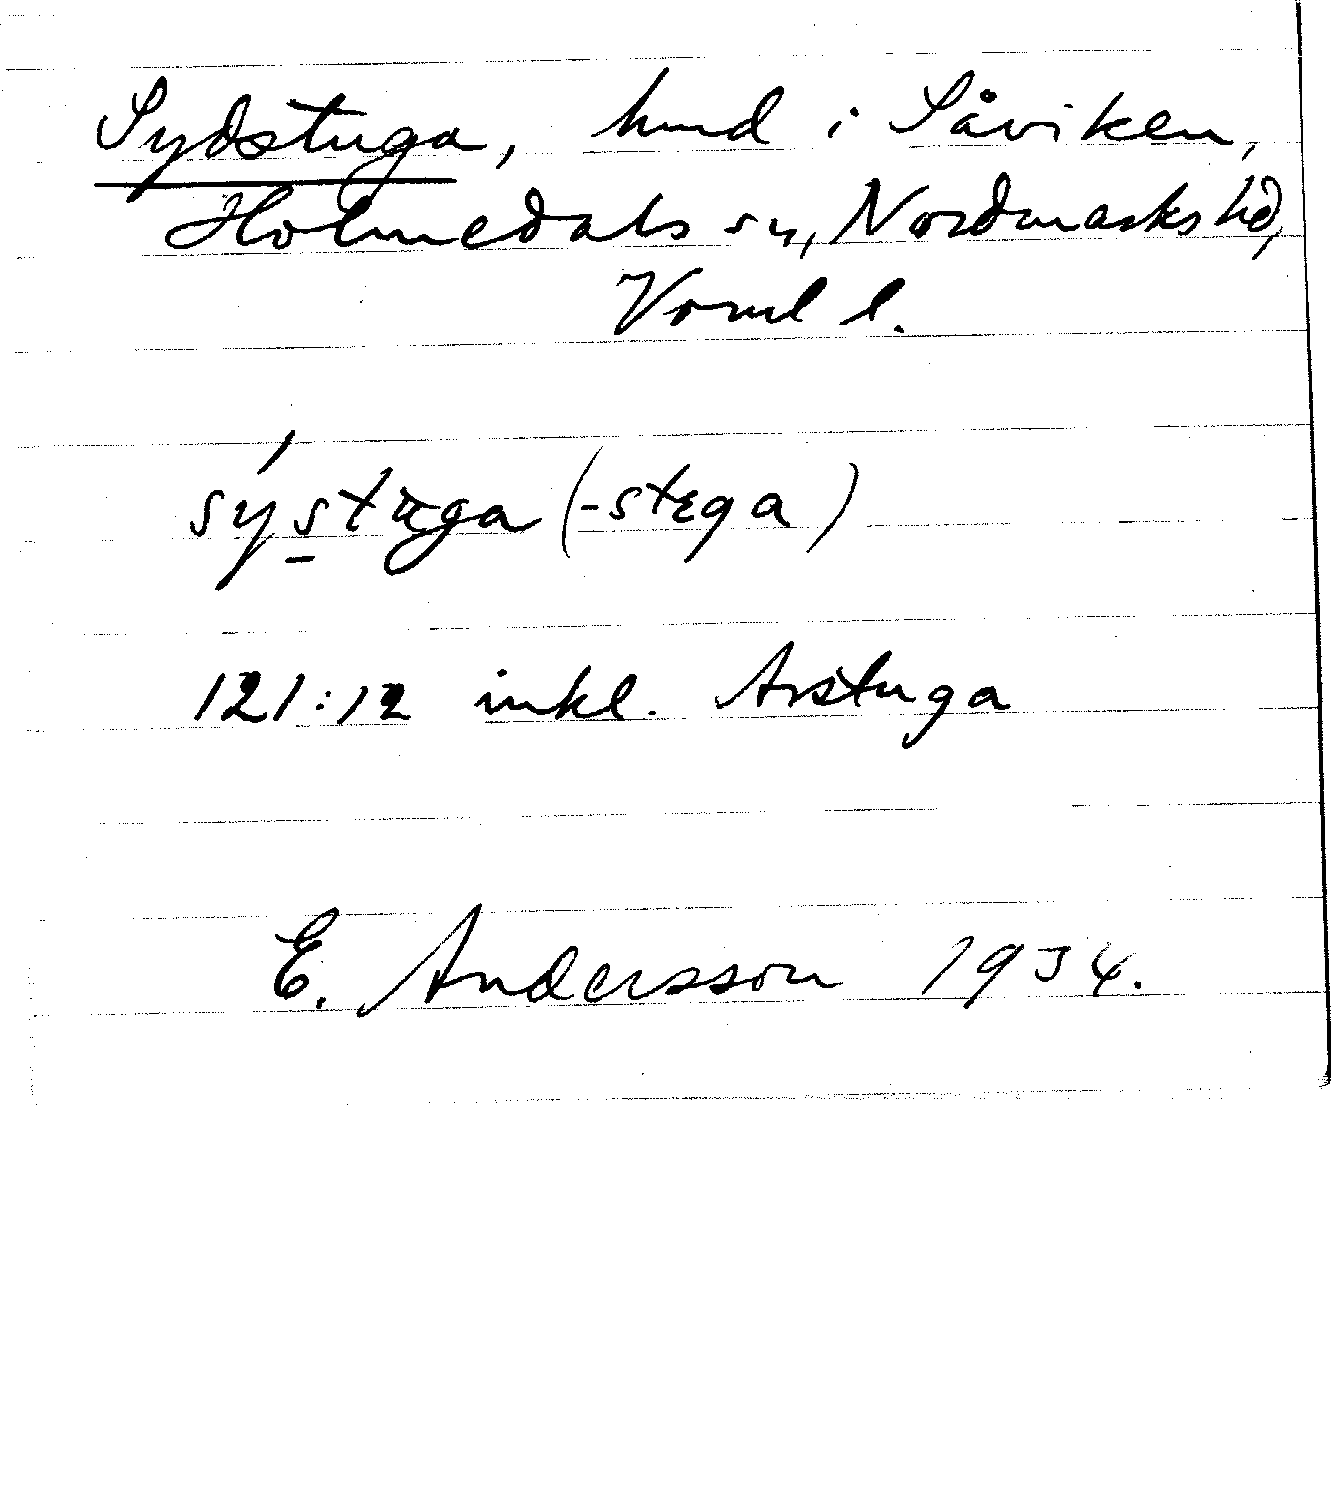 Sydstuga, hmd i Såviken,
Holmedals sn, Nordmarks hd,
Vrml l.
sýstuga (-stega)
121:12 inkl. Avstuga
E. Andersson 1934.